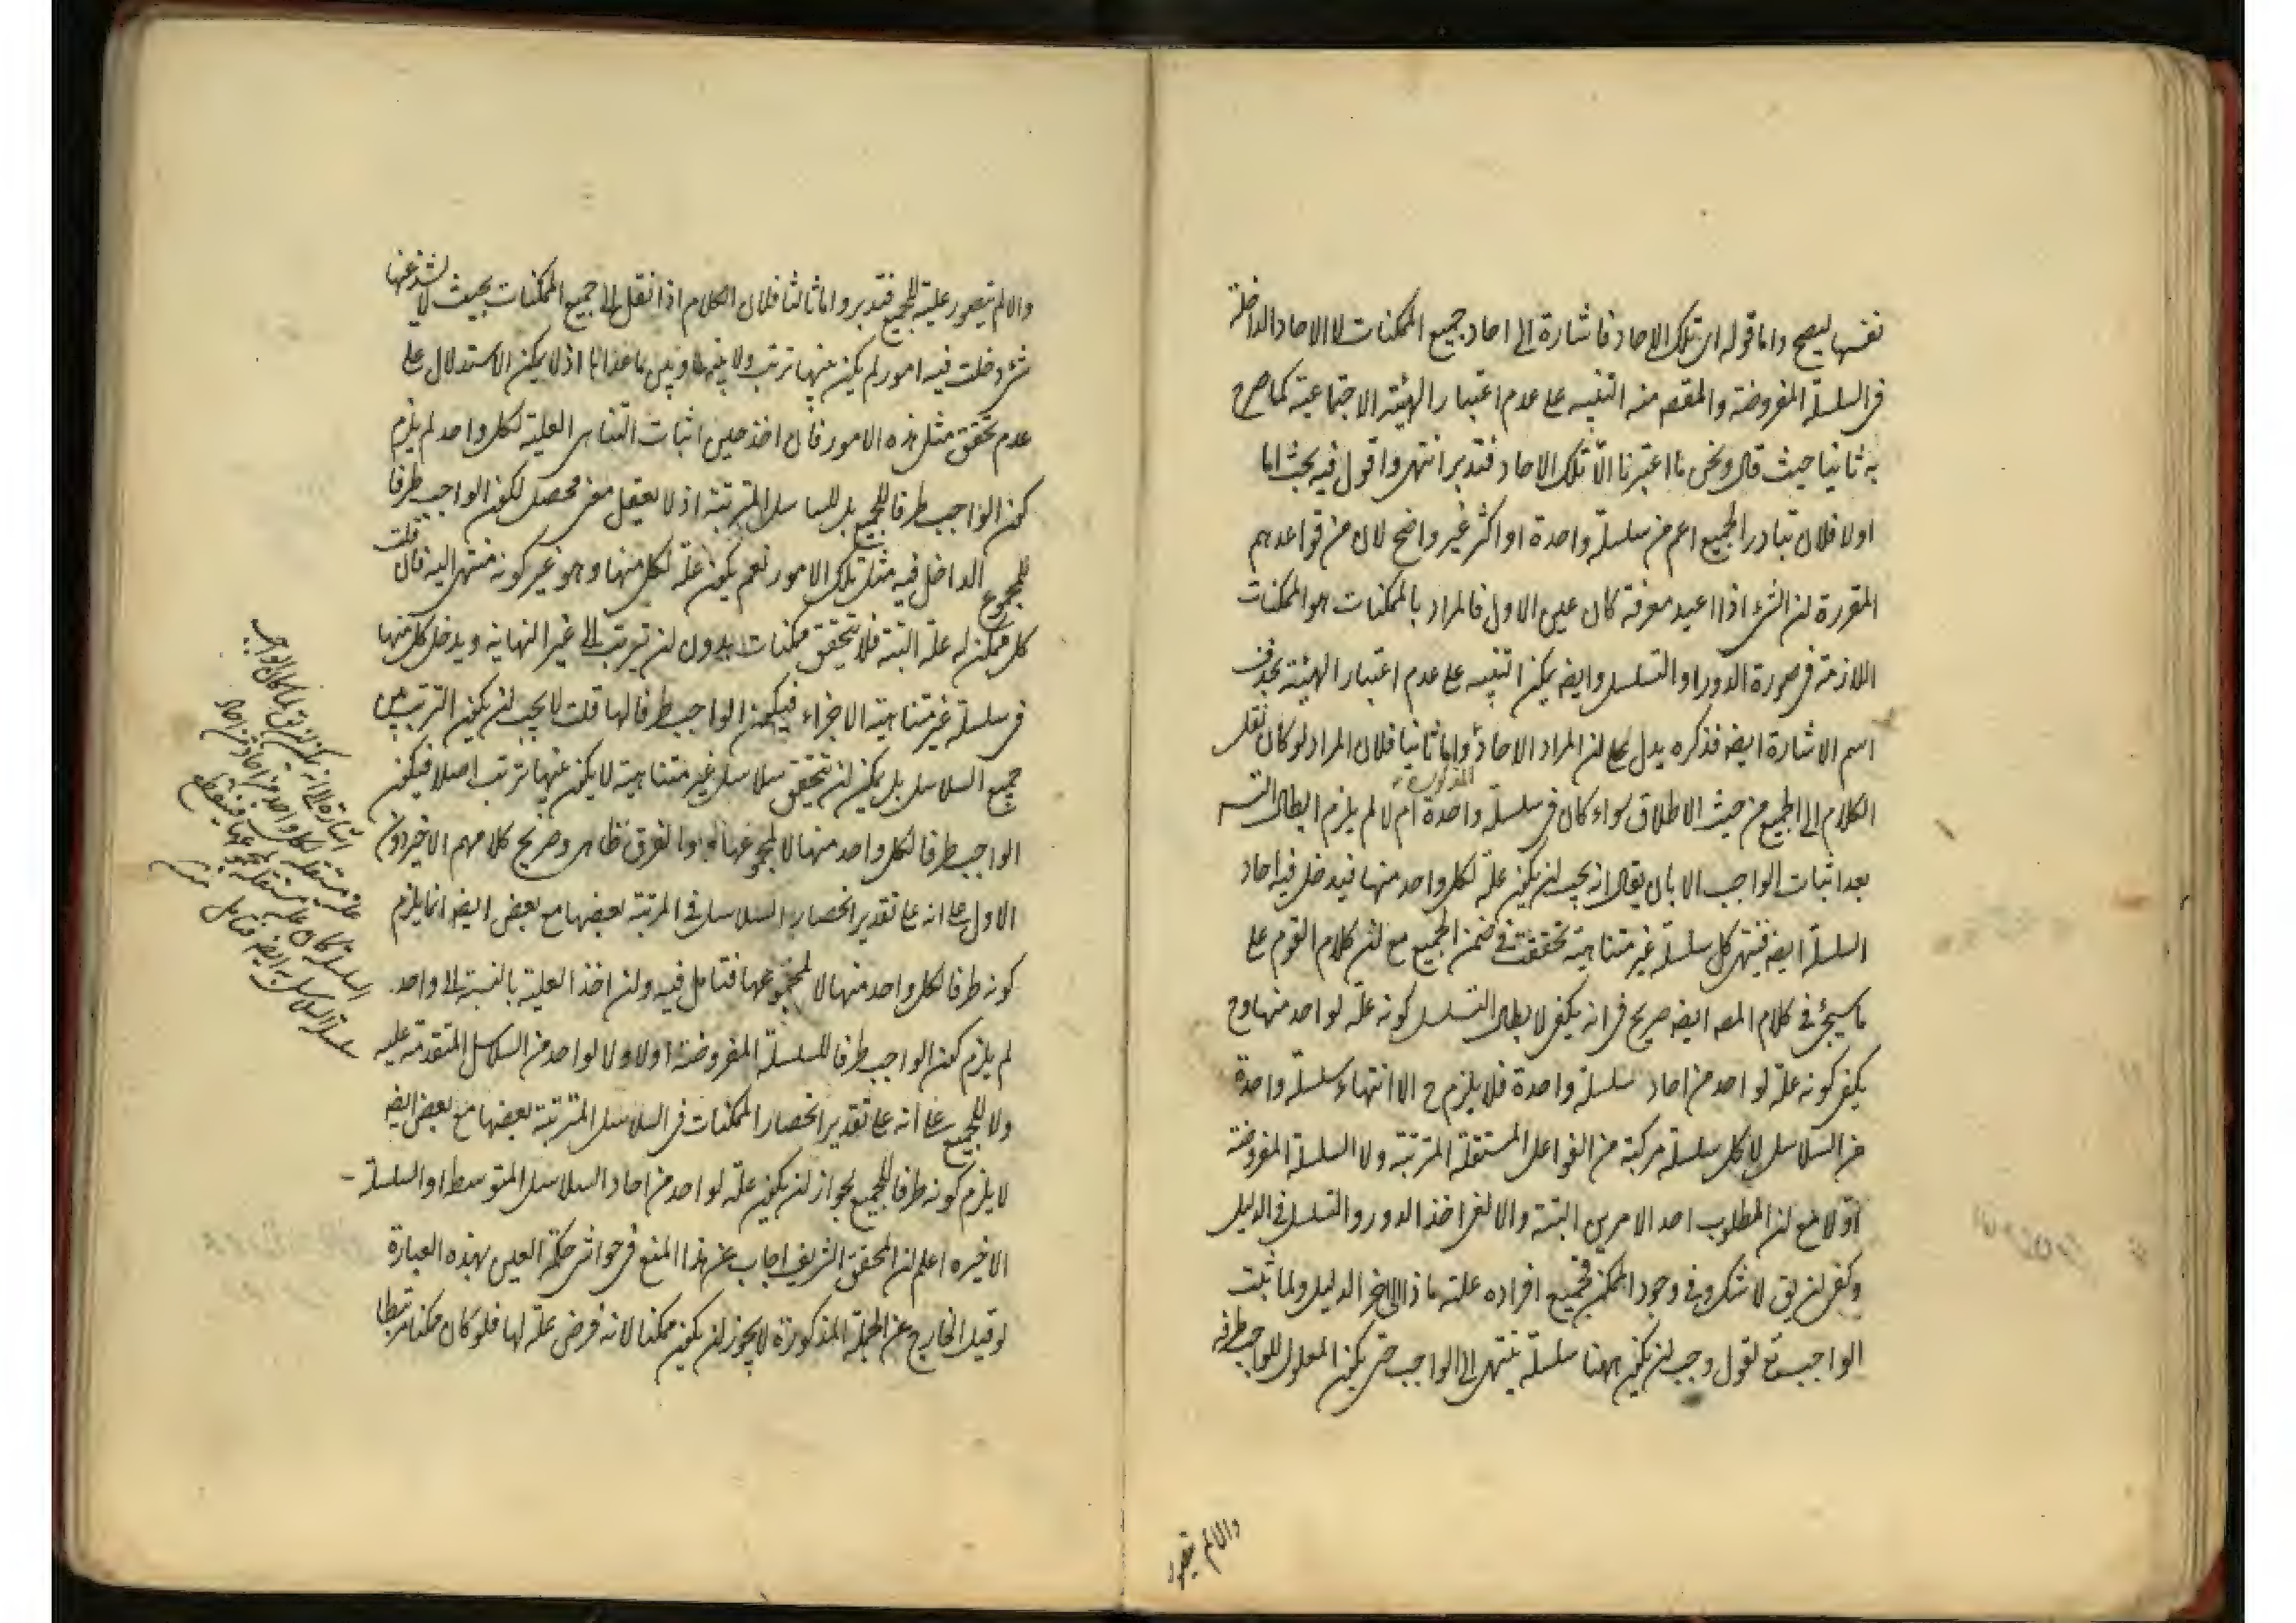 نفسها ليصح واما قوله اى تلك الاحاد فاشارة الى احاد جميع الممكنات لا الاحاد الداخلة
فى السلسلة المفروضة والمقصه منه التنبيه على عدم اعتبار الهيئة الاجتماعية كما صرح
به ثانيا حيث قال ونحن ما اعتبرنا الّا تلك الاحاد فتدبر انتهى واقول فيه بحث اما
اولا فلان تبادر الجميع اعم من سلسلة واحدة او اكثر غير واضح لان من قواعدهم
المقررة ان الشئ اذا اعيد معرفة كان عين الاول فالمراد بالممكنات هو الممكنات
اللازمة فى صورة الدور او التسلسل وايضه يمكن التنبيه على عدم اعتبار الهيئة بحذف
اسم الاشارة ايضه فذكره يدل على ان المراد الاحاد المذكورة واما ثانيا فلان المراد لو كان نقل
الكلام الى الجميع من حيث الاطلاق سواء كان فى سلسلة واحدة ام لا لم يلزم ابطال التسه
بعد اثبات الواجب الا بان يقال انه يجب ان يكون علة لكل واحد منها فيدخل فيه احاد
السلسلة ايضه فينتهى كل سلسلة غير متناهية تحققت فى ضمن الجميع مع ان كلام القوم على
ما سيجئ فى كلام المصه ايضه صريح فى انه يكفى لابطال التسلسل كونه علة لواحد منها وح
يكفى كونه علة لواحد من احاد سلسلة واحدة فلا يلزم ح الا انتهاء سلسلة واحدة
من السلاسل لا كل سلسلة مركبة من الفواعل المستقلة المترتبة ولا السلسلة المفروضة
اولا مع ان المطلوب احد الامرين البتة والا لغى اخذ الدور والتسلسل فى الدليل
وكفى ان يق لا شك فى وجود الممكن فجميع افراده علته ماذا الى اخر الدليل ولما ثبت
الواجب تع نقول وجب ان يكون ههنا سلسلة ينتهى الى الواجب حتى يكون المعلول للواجب طرفه
والا لم يتصور
والا لم يتصور علية للجميع فتدبر واما ثالثا فلان الكلام اذا نقل الى جميع الممكنات بحيث لا يشذ عنها
شئ دخلت فيه امور لم يكن بينها ترتب ولا بينها وبين ما عداها اذ لا يمكن الاستدلال على
عدم تحقق مثل هذه الامور فان اخذ حين اثبات التناهى العلية لكل واحد لم يلزم
كون الواجب طرفا للجميع بل للسلاسل المترتبة اذ لا يعقل معنى محصل لكون الواجب طرفا
للمجموع الداخل فيه مثل تلك الامور نعم يكون علة لكل منها وهو غير كونه منتهى اليه فان قلت
كل ممكن له علة البتة فلا يتحقق ممكنات بدون ان يترتب الى غير النهاية ويدخل كل منها
فى سلسلة غير متناهية الاجزاء فيكون الواجب طرفا لها قلت لا يجب ان يكون الترتب بين
جميع السلاسل بل يمكن ان يتحقق سلاسل غير متناهية لا يكون بينها ترتب اصلا فيكون
الواجب طرفا لكل واحد منها لا لمجموعها والفرق ظاهر وصريح كلامهم الاخير دون
الاول على انه على تقدير انحصار السلاسل فى المرتبة بعضها مع بعض ايضه انما يلزم
كونه طرفا لكل واحد منها لا لمجموعها فتامل فيه وان اخذ العلية بالنسبة الى واحد
لم يلزم كون الواجب طرفا للسلسلة المفروضة اولا ولا لواحد من السلاسل المتقدمة عليه
ولا للجميع على انه على تقدير انحصار الممكنات فى السلاسل المترتبة بعضها مع بعض ايضه
لا يلزم كونه طرفا للجميع لجواز ان يكون علة لواحد من احاد السلاسل المتوسط او السلسلة
الاخيره اعلم ان المحقق الشريف اجاب عن هذا المنع فى حواشى حكمة العين بهذه العبارة
لو قيل الخارج عن الجملة المذكورة لا يجوز ان يكون ممكنا لانه فرض علة لها فلو كان ممكنا مرتبطا
اشارة الى انه يمكن ان يق لما كان الواجب
علة مستقلة لكل واحد من احاد من احاد
السلسلة كان علة مستقلة لمجموعها فينقطع
سلسلة السلاسل به ايضه فتامل منه